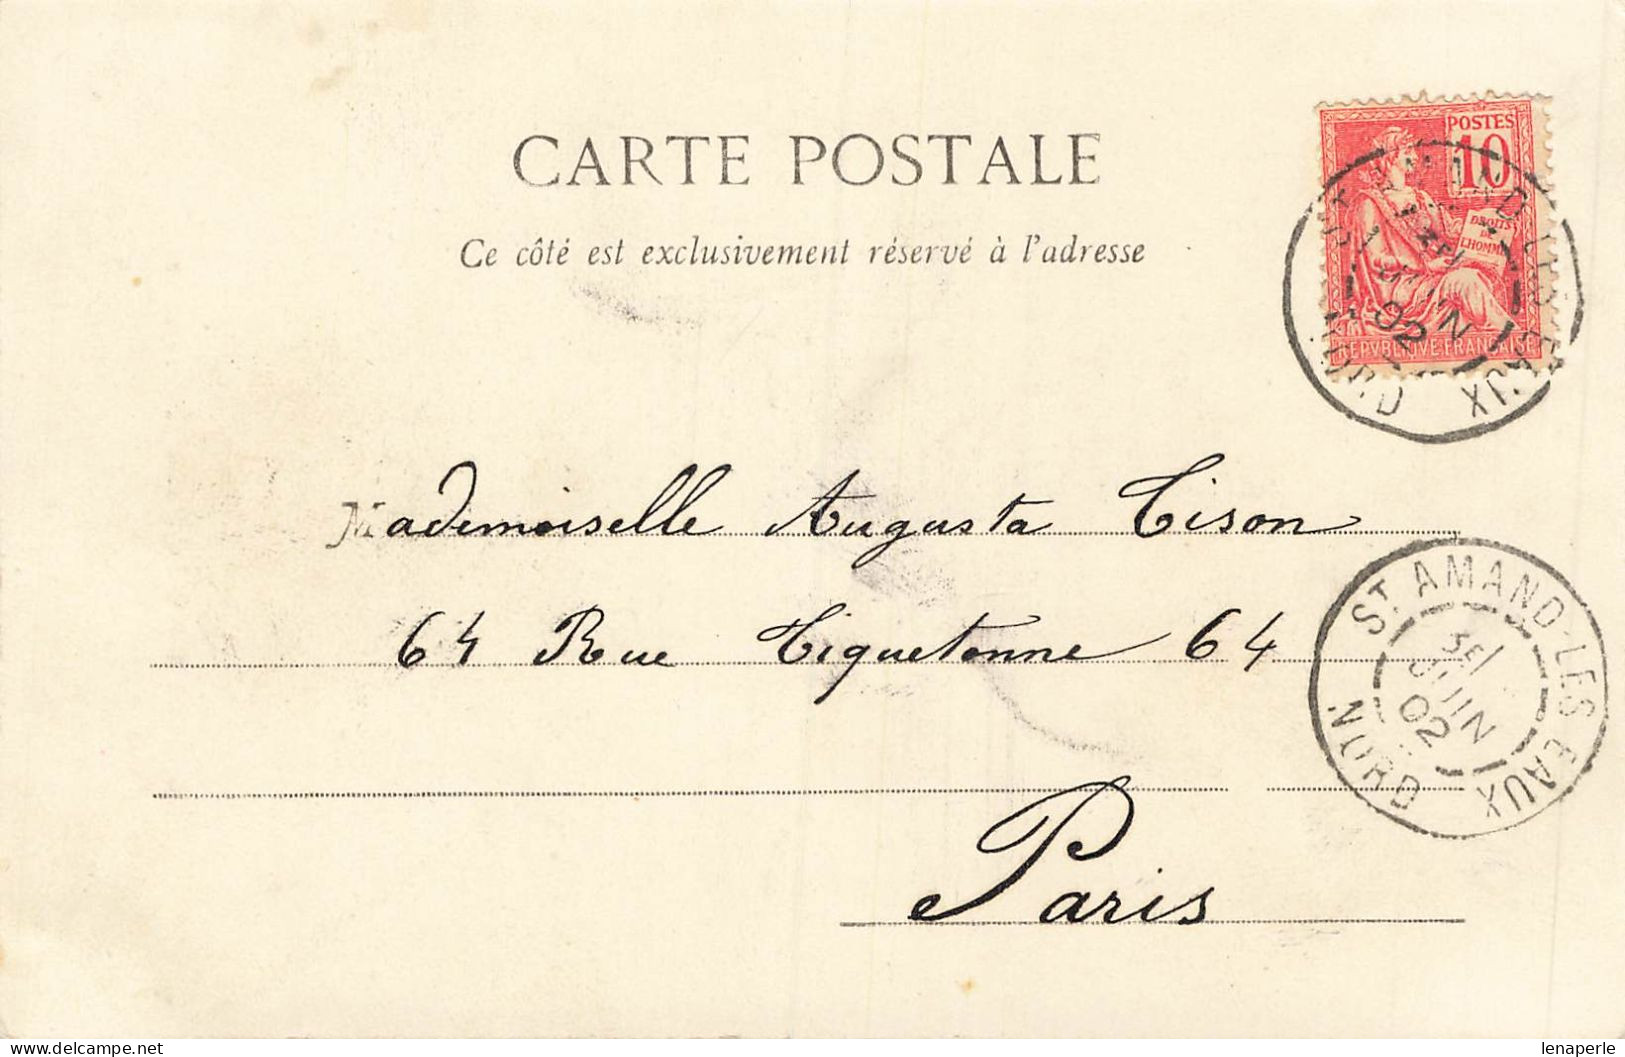 CARTE POSTALE
Ce côté est exclusivement réservé à l'adresse
POSTES
10
DROITS
DE
L'HOMME
REPVBLIQVE FRANCAISE
JUIN
02
Mademoiselle Augusta Tison
64 Rue Tiquetonne 64
Paris
ST AMAND-LES-EAUX
JUIN
02
NORD
lenaperle